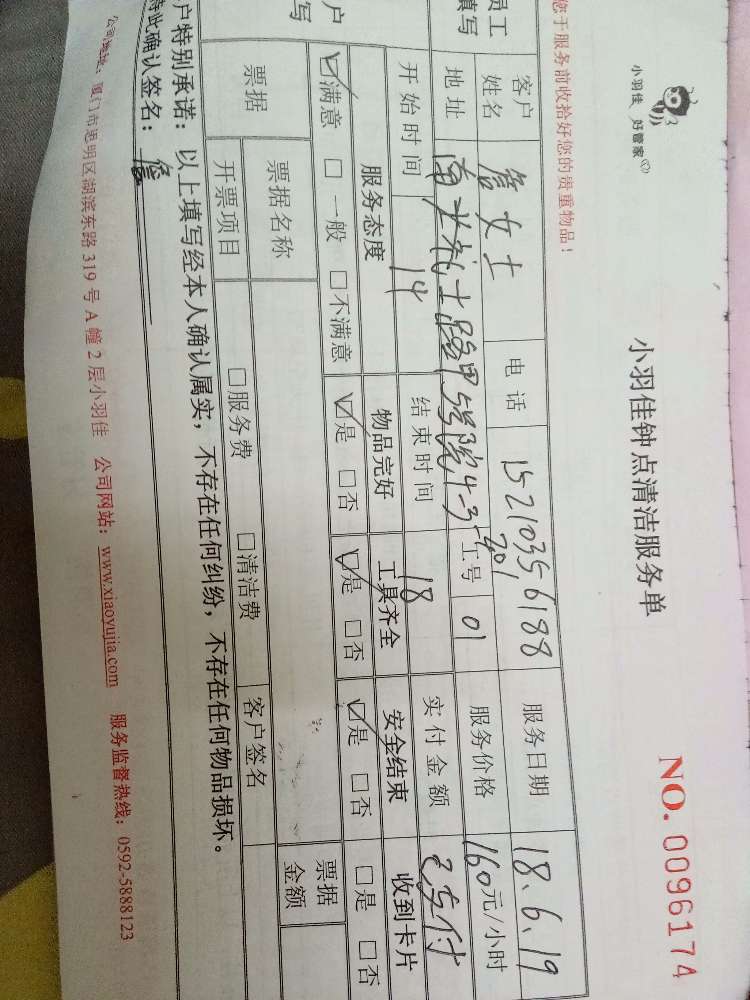 小羽佳 好管家
小羽佳钟点清洁服务单
NO. 0096174
您于服务前收拾好您的贵重物品!
员工
填写
客户
姓名
詹女士
电话
15210356188
服务日期
18.6.19
地址
4-3-201
工号
01
服务价格
160元/小时
开始时间
14
结束时间
18
实付金额
已支付
户
写
服务态度
物品完好
工具齐全
安全结束
收到卡片
☑满意 □一般 □不满意
☑是 □否
☑是 □否
☑是 □否
□是 □否
票据
票据名称
票据
金额
开票项目
□服务费 □清洁费
客户签名
户特别承诺:以上填写经本人确认属实,不存在任何纠纷,不存在任何物品损坏。
特此确认签名:詹
公司地址:厦门市思明区湖滨东路 319 号 A 幢 2 层小羽佳 公司网站:www.xiaoyujia.com 服务监督热线:0592-5888123